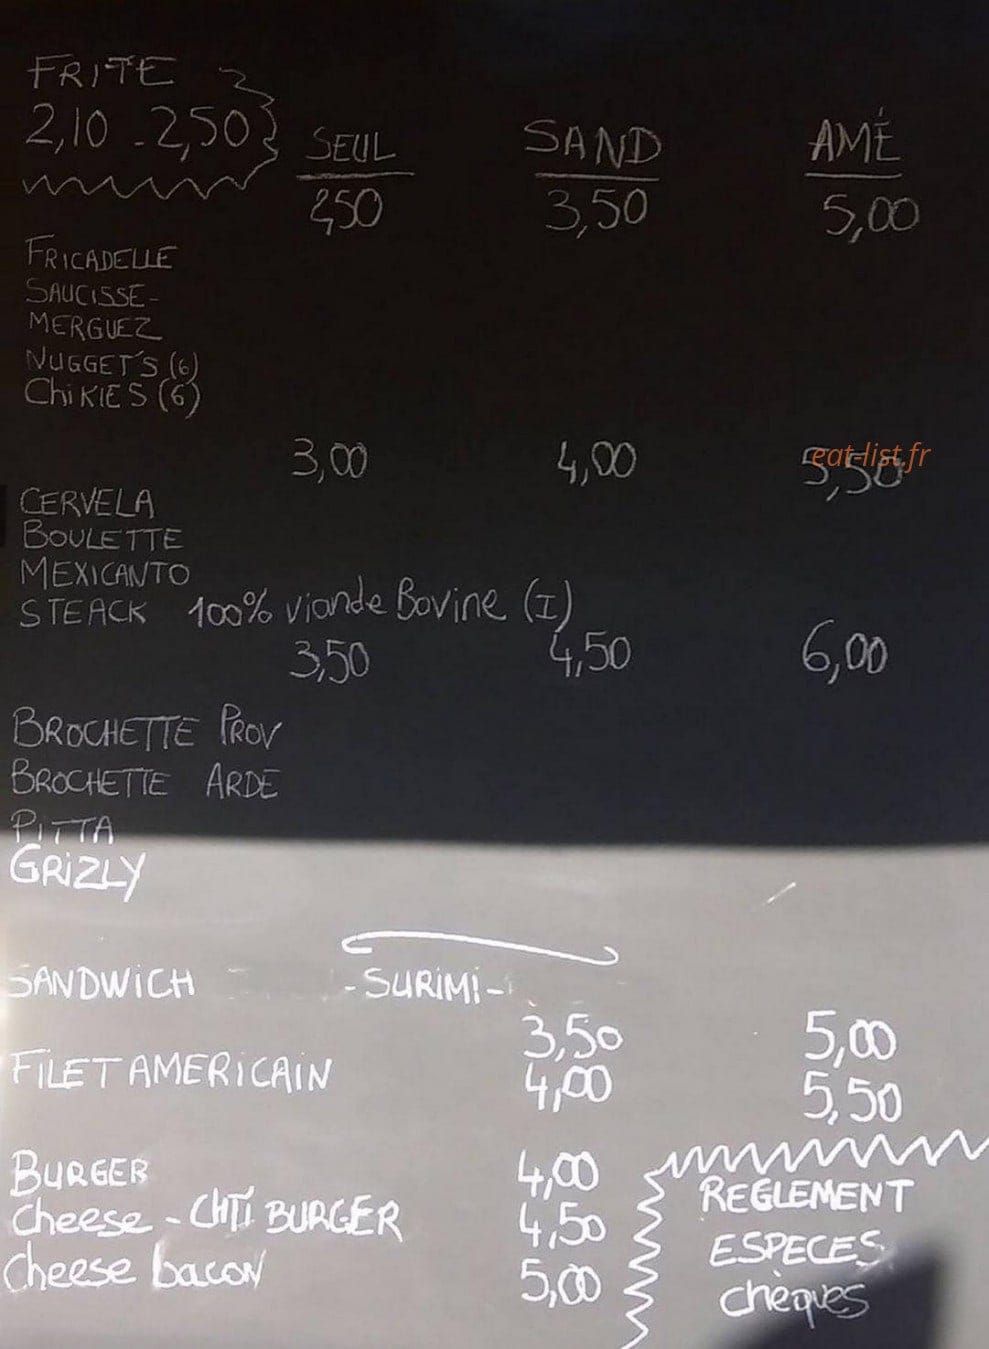 FRITE
2,10 - 2,50
SEUL SAND AMÉ
2,50 3,50 5,00
FRICADELLE
SAUCISSE -
MERGUEZ
NUGGET'S (6)
ChiKIES (6)
3,00 4,00 5,50
eat-list.fr
CERVELA
BOULETTE
MEXICANTO
STEACK 100% viande Bovine (I)
3,50 4,50 6,00
BROCHETTE PROV
BROCHETTE ARDE
PITTA
GRIZLY
SANDWICH - SURIMI -
3,50 5,00
FILET AMERICAIN 4,00 5,50
BURGER 4,00
Cheese - CHTI BURGER 4,50
Cheese bacon 5,00
REGLEMENT
ESPECES
chèques